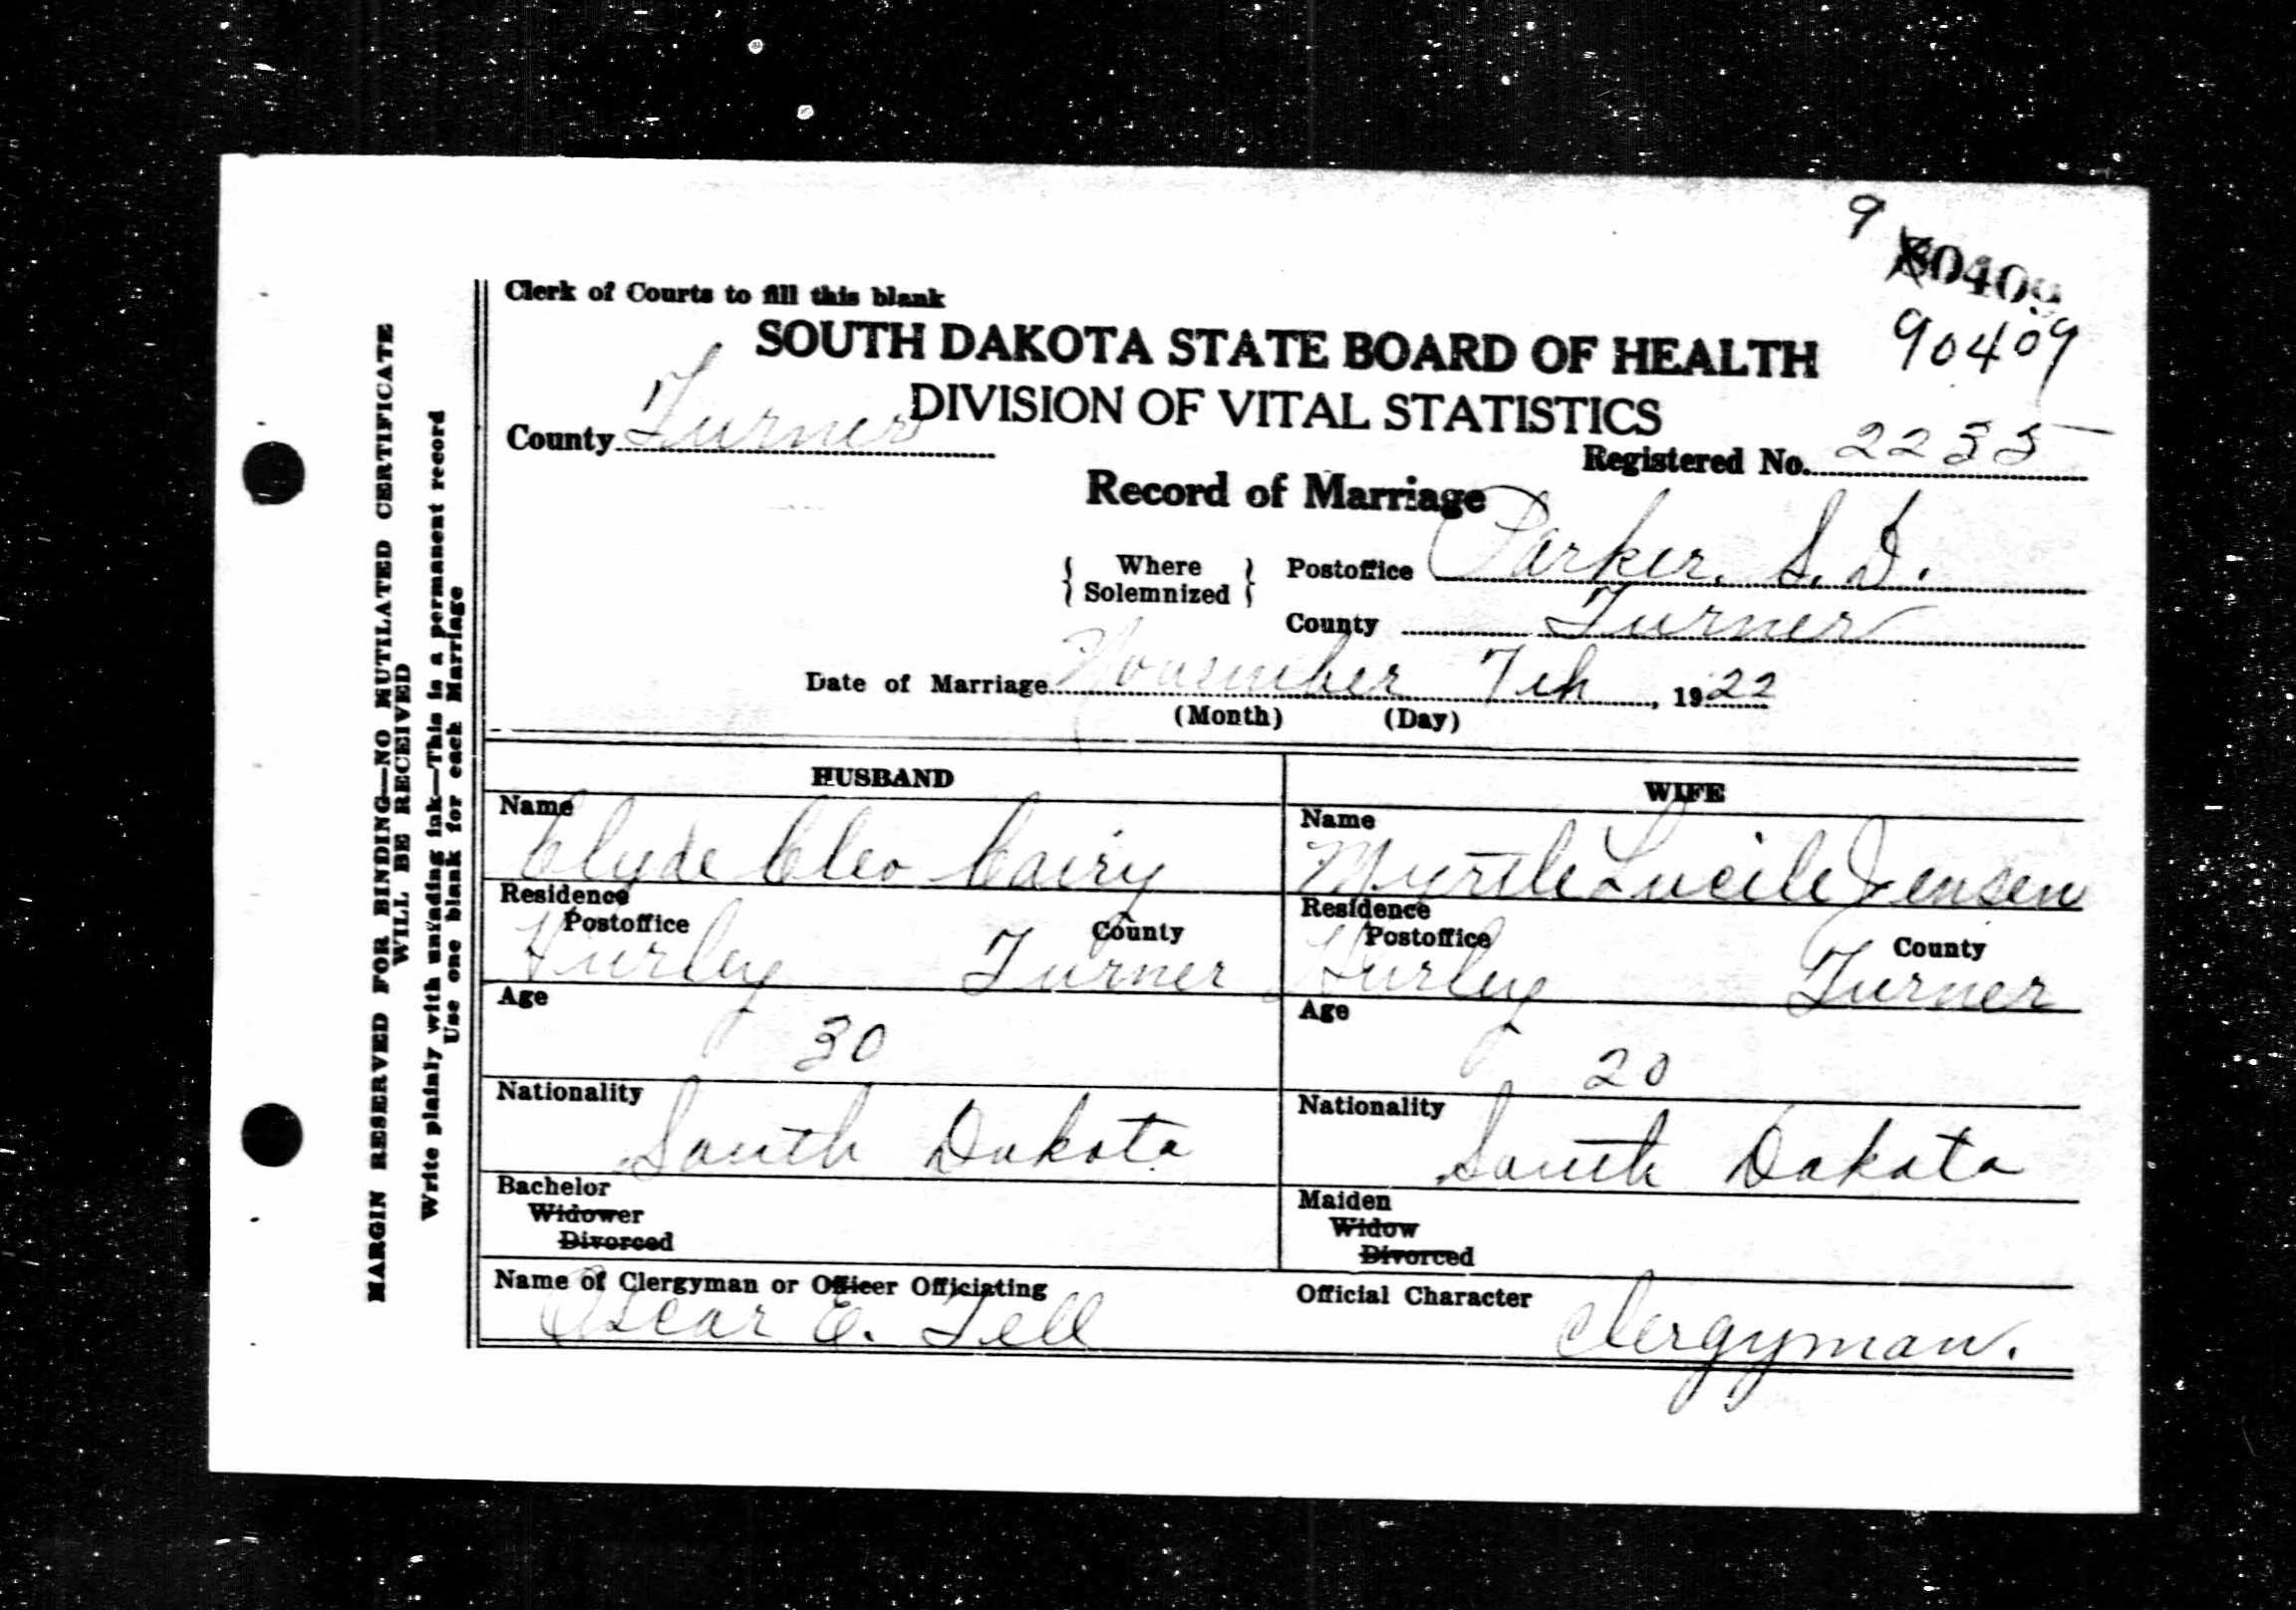 9
80409
90409
Clerk of Courts to fill this blank
SOUTH DAKOTA STATE BOARD OF HEALTH
DIVISION OF VITAL STATISTICS
County Turner
Registered No. 2235
Record of Marriage
{ Where Solemnized } Postoffice Parker, S. D.
County Turner
Date of Marriage November 7th, 1922
(Month) (Day)
HUSBAND
Name
Clyde Cleo Cairy
Residence
Postoffice County
Hurley Turner
Age
30
Nationality
South Dakota
Bachelor
Widower
Divorced
WIFE
Name
Myrtle Lucile Jensen
Residence
Postoffice County
Hurley Turner
Age
20
Nationality
South Dakota
Maiden
Widow
Divorced
Name of Clergyman or Officer Officiating
Oscar E. Tell
Official Character Clergyman.
MARGIN RESERVED FOR BINDING—NO MUTILATED CERTIFICATE
WILL BE RECEIVED
Write plainly with unfading ink—This is a permanent record
Use one blank for each Marriage